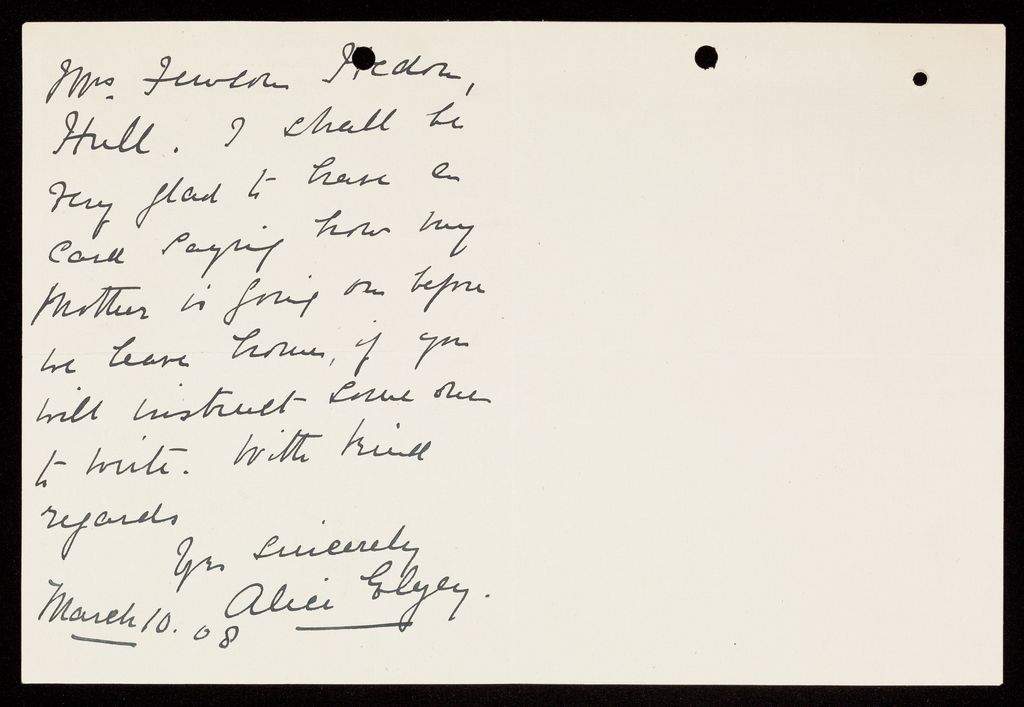 Mrs. Fewson Hedon,
Hull. I shall be
very glad to have a
card saying how my
Mother is going on before
we leave home, if you
will instruct some one
to write. With kind
regards
Yrs sincerely
March 10. 08 Alice